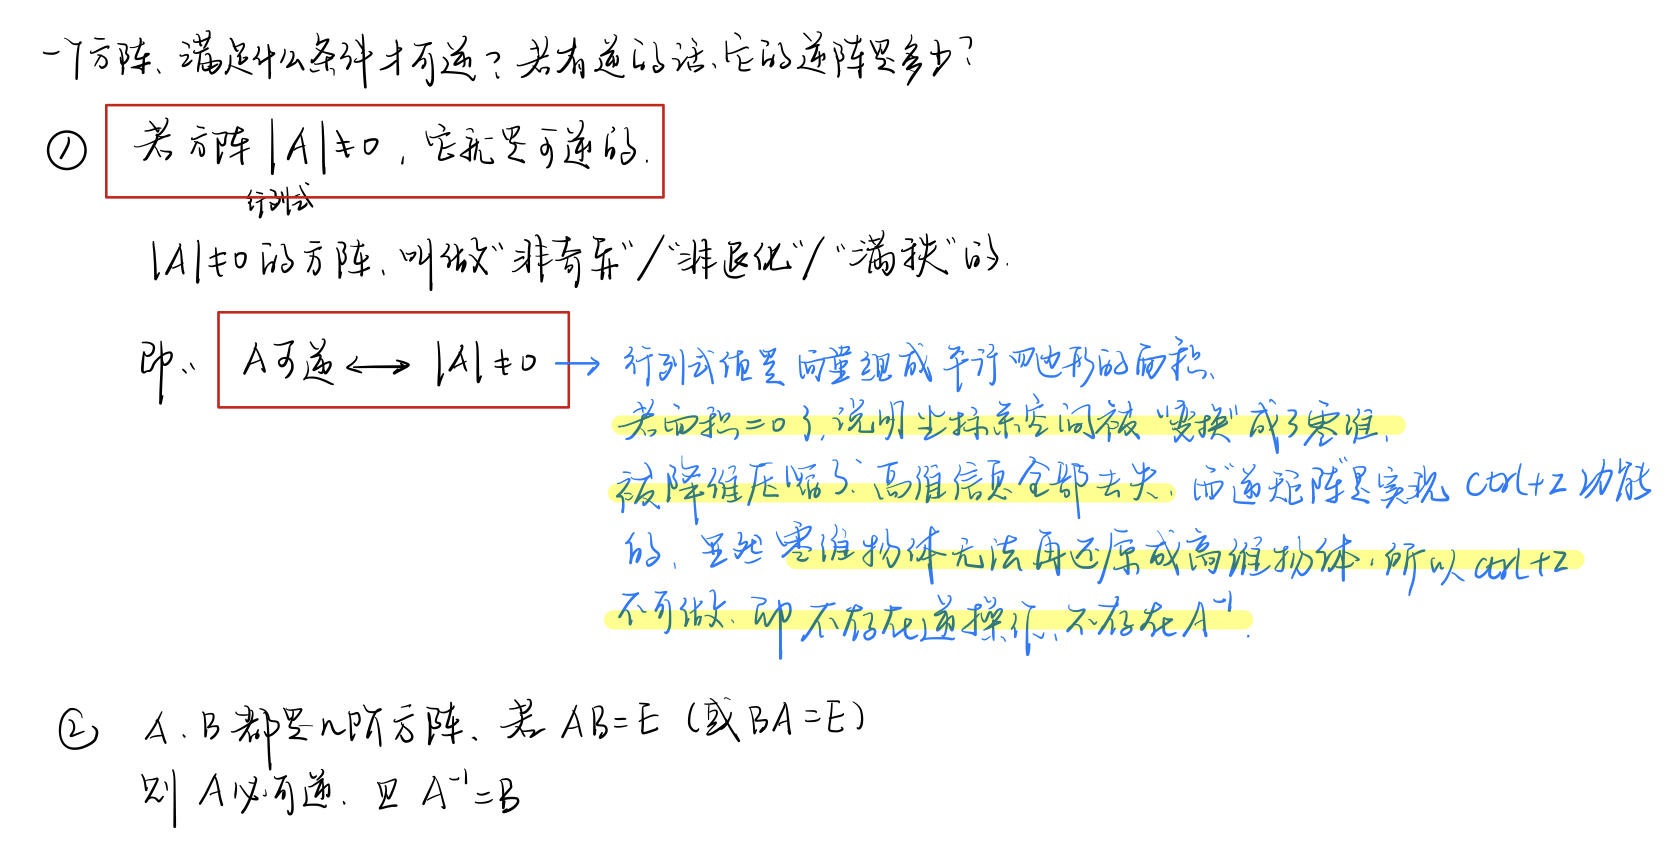 一个方阵、满足什么条件才可逆？若有逆的话、它的逆阵是多少？
① 若方阵|A|≠0，它就是可逆的.
行列式
|A|≠0的方阵、叫做"非奇异"/"非退化"/"满秩"的.
即： A可逆⟷|A|≠0 → 行列式值是向量组成平行四边形的面积、
若面积=0了,说明坐标系空间被"变换"成了零维、
被降维压缩了、高维信息全部丢失、而逆矩阵是实现 ctrl+z 功能
的、显然零维物体无法再还原成高维物体、所以ctrl+z
不可做、即不存在逆操作、不存在A⁻¹.
② A、B都是n阶方阵、若AB=E（或BA=E）
则A必可逆、且A⁻¹=B